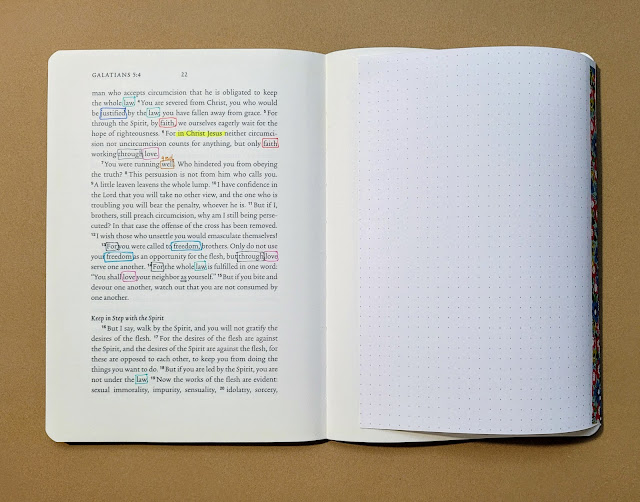 GALATIANS 5:4 22
man who accepts circumcision that he is obligated to keep
the whole law. 4 You are severed from Christ, you who would
be justified by the law; you have fallen away from grace. 5 For
through the Spirit, by faith, we ourselves eagerly wait for the
hope of righteousness. 6 For in Christ Jesus neither circumci-
sion nor uncircumcision counts for anything, but only faith
working through love.
7 You were running well. Who hindered you from obeying
the truth? 8 This persuasion is not from him who calls you.
9 A little leaven leavens the whole lump. 10 I have confidence in
the Lord that you will take no other view, and the one who is
troubling you will bear the penalty, whoever he is. 11 But if I,
brothers, still preach circumcision, why am I still being perse-
cuted? In that case the offense of the cross has been removed.
12 I wish those who unsettle you would emasculate themselves!
13 For you were called to freedom, brothers. Only do not use
your freedom as an opportunity for the flesh, but through love
serve one another. 14 For the whole law is fulfilled in one word:
“You shall love your neighbor as yourself.” 15 But if you bite and
devour one another, watch out that you are not consumed by
one another.
Keep in Step with the Spirit
16 But I say, walk by the Spirit, and you will not gratify the
desires of the flesh. 17 For the desires of the flesh are against
the Spirit, and the desires of the Spirit are against the flesh, for
these are opposed to each other, to keep you from doing the
things you want to do. 18 But if you are led by the Spirit, you are
not under the law. 19 Now the works of the flesh are evident:
sexual immorality, impurity, sensuality, 20 idolatry, sorcery,